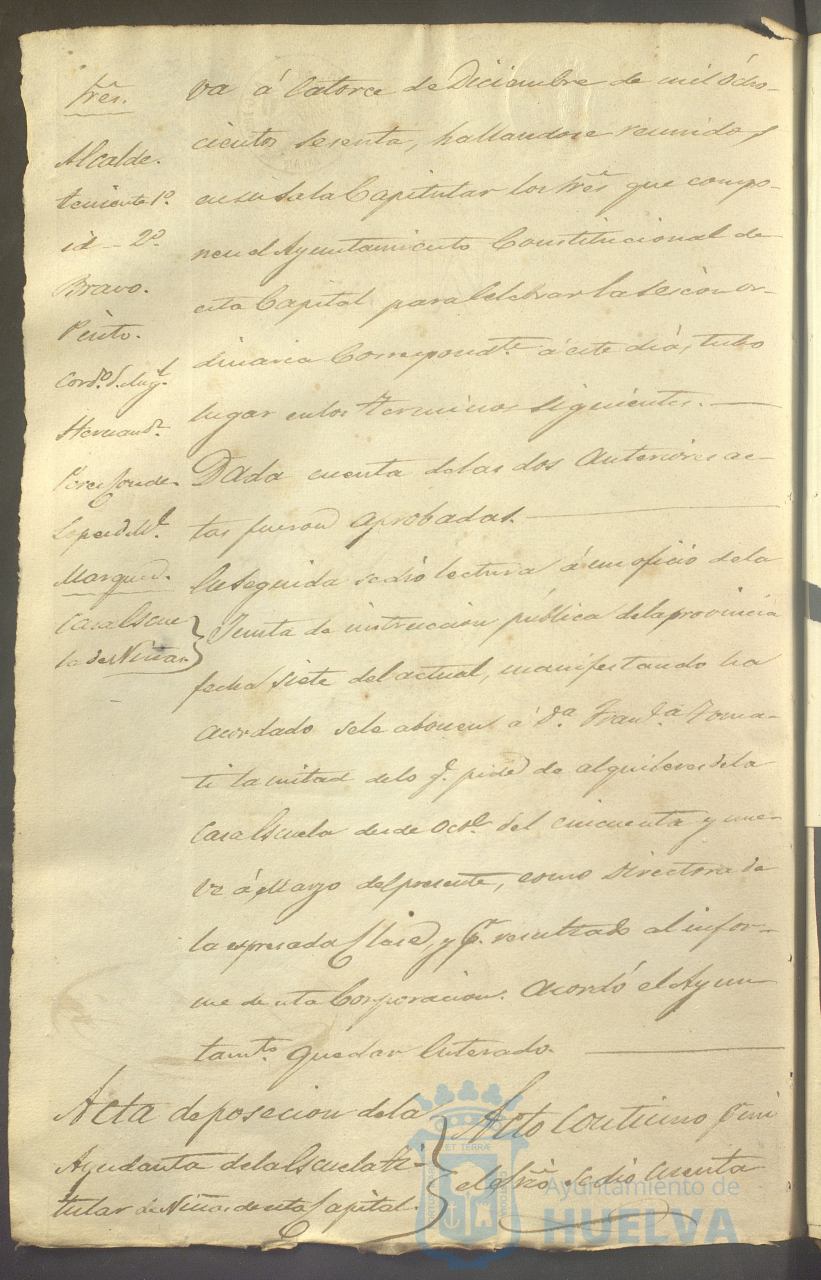 Sres.
Alcalde.
teniente 1º.
id -- 2º.
Bravo.
Pinto.
Hernandz.
Marquez.
Casa Escue
la de Niñas
va á Catorce de Diciembre de mil Ócho-
cientos Sesenta, hallandose reunidos
en su Sala Capitular los Sres que compo-
nen el Ayuntamiento Constitucional de
esta Capital para Celebrar la Sesion or-
dinaria Correspondte. á este dia, tubo
lugar en los terminos Siguientes.
Dada cuenta de las dos Anteriores ac-
tas fueron aprobadas.
En Seguida se dió lectura á un oficio de la
Junta de instruccion pública de la provincia
fecha Siete del actual, manifestando ha
acordado se le abonen á Dª. Franca.
ti la mitad de lo q. pide de alquileres de la
Casa Escuela desde Octe. del cincuenta y nue-
ve á Marzo del presente, como Directora de
la expresada Clase, y pr. resultado al infor-
me de esta Corporacion. Acordó el Ayun-
tamto. quedar Enterado.
Acta de posecion de la
Ayudanta de la Escuela ti-
tular de Niñas de esta Capital.
Acto Continuo
el Srio se dió Cuenta
ET TERRÆ
Ayuntamiento de
HUELVA